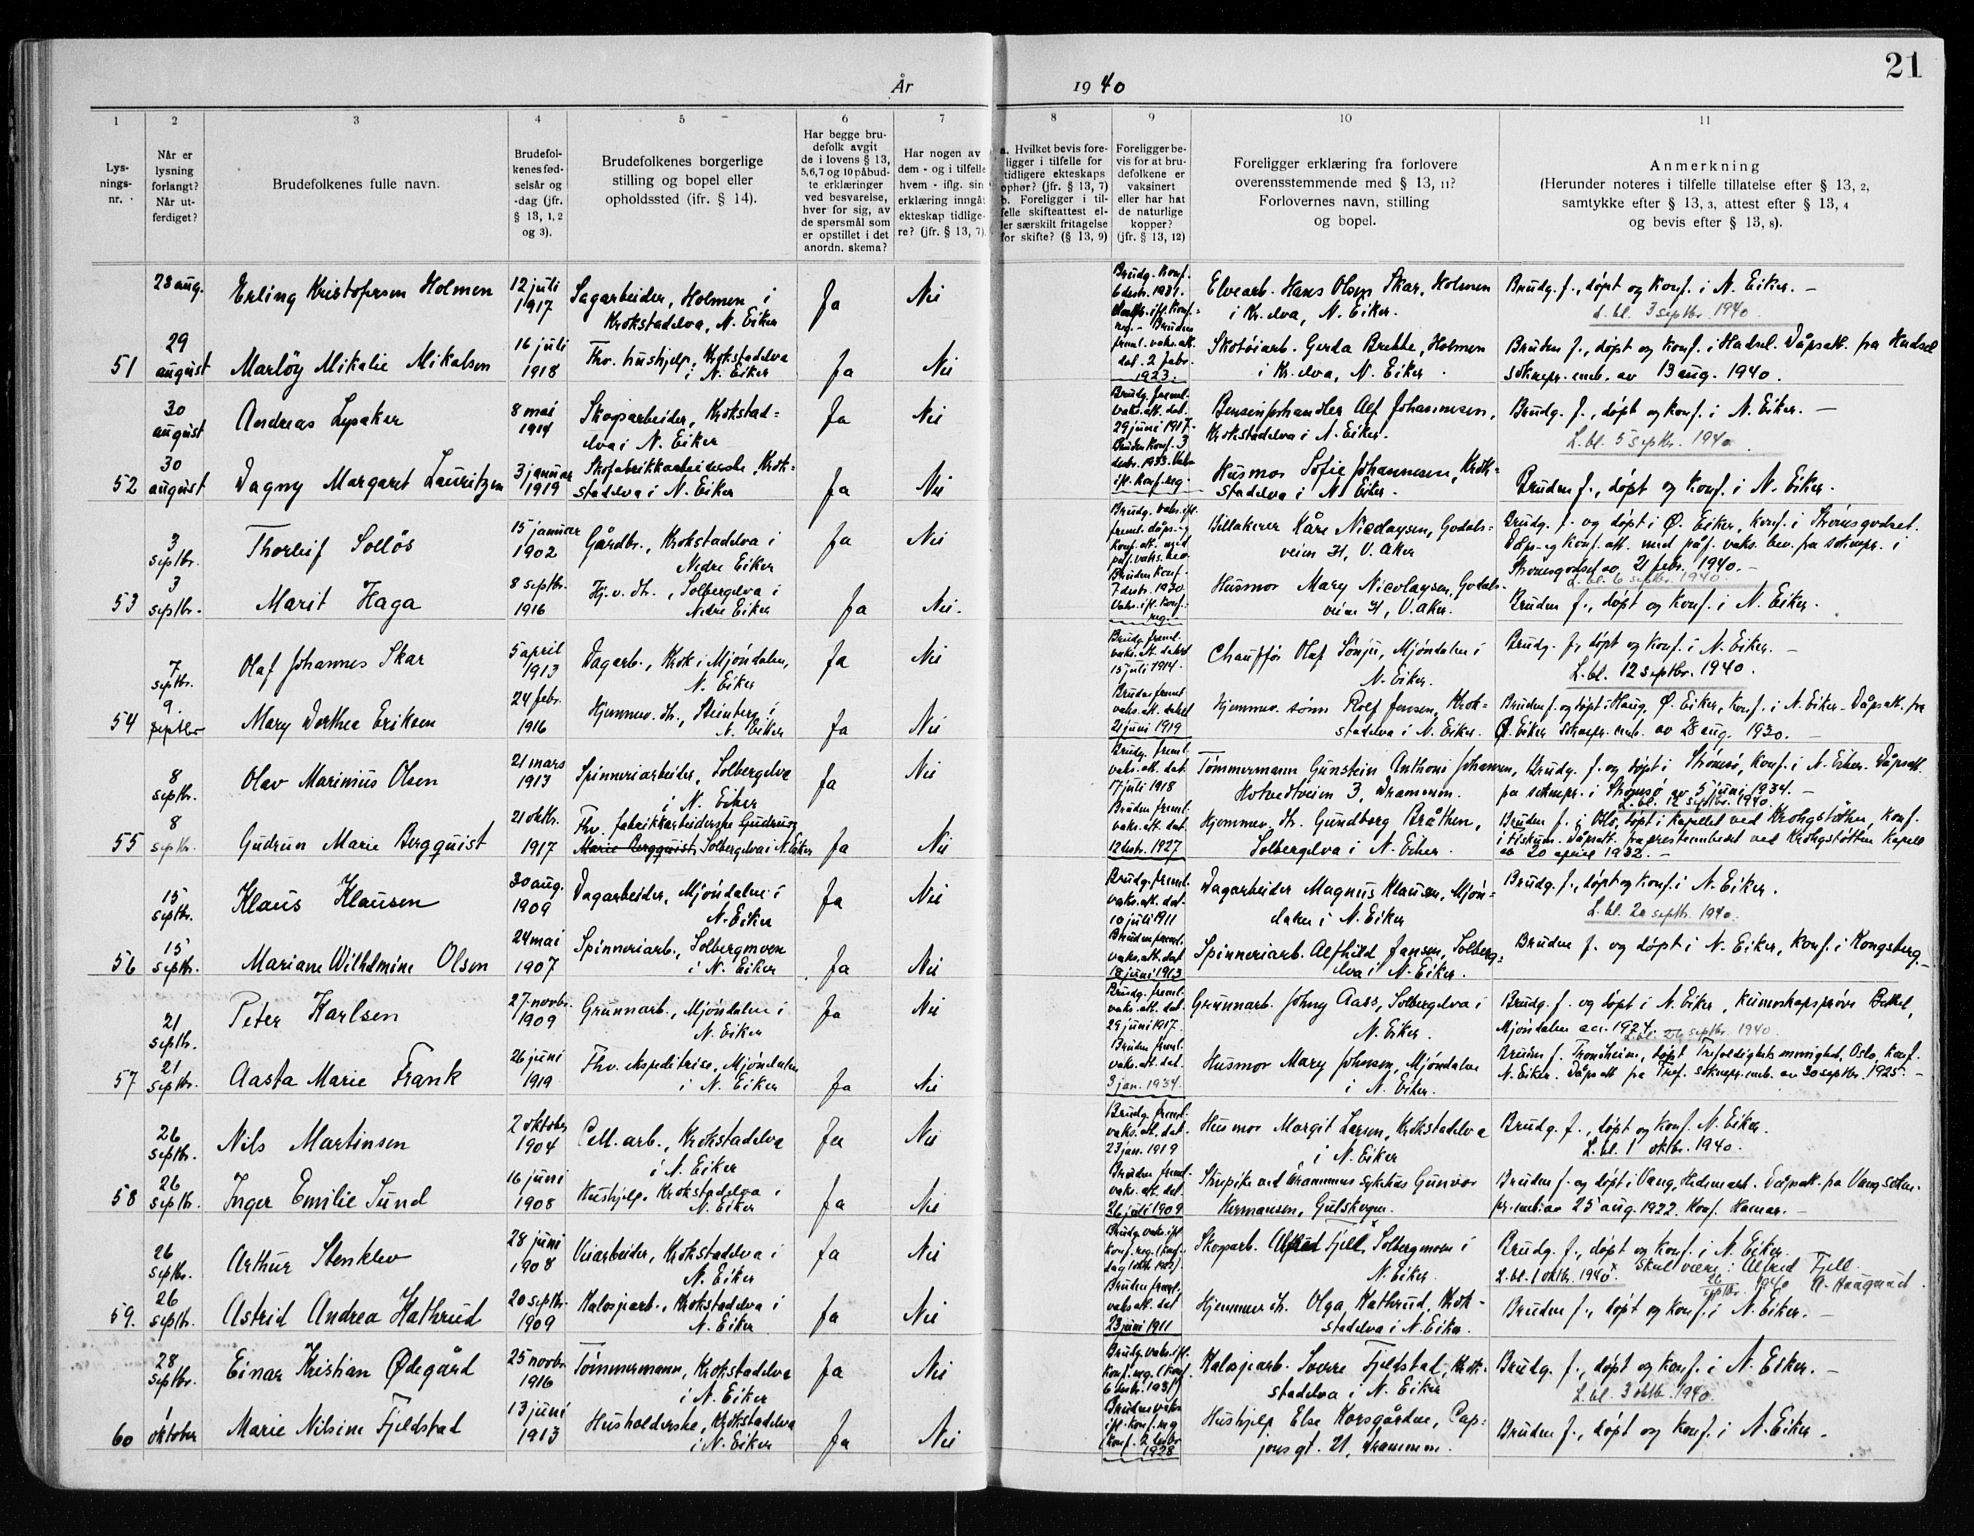 21
År 1940
1 2 3 4 5 6 7 8 9 10 11
Lys-
nings-
nr.
Når er
lysning
forlangt?
Når ut-
ferdiget?
Brudefolkenes fulle navn.
Brudefol-
kenes fød-
selsår og
-dag (jfr.
§ 13, 1, 2
og 3).
Brudefolkenes borgerlige
stilling og bopel eller
opholdssted (ifr. § 14).
Har begge bru-
defolk avgit
de i lovens § 13,
5, 6, 7 og 10 påbud-
te erklæringer
ved besvarelse,
hver for sig, av
de spørsmål som
er opstillet i det
anordn. skema?
Har nogen av
dem - og i tilfelle
hvem - iflg. sin
erklæring inngåt
ekteskap tidlige-
re? (jfr. § 13, 7).
a. Hvilket bevis fore-
ligger i tilfelle for
tidligere ekteskaps
ophør? (jfr. § 13, 7)
b. Foreligger i til-
felle skifteattest el-
ler særskilt fritagelse
for skifte? (§ 13, 9)
Foreligger be-
vis for at bru-
defolkene er
vaksinert
eller har hat
de naturlige
kopper?
(jfr. § 13, 12)
Foreligger erklæring fra forlovere
overensstemmende med § 13, 11?
Forlovernes navn, stilling
og bopel.
Anmerkning
(Herunder noteres i tilfelle tillatelse efter § 13, 2,
samtykke efter § 13, 3, attest efter § 13, 4
og bevis efter § 13, 8).
28 aug. Erling Kristofersen Holmen 12 juli 1917 Sagarbeider, Holmen i Krokstadelva, N. Eiker Ja Nei
Brudg. konf. 6 destr. 1931.
Elvearb. Hans Olsen Skar, Holmen i Kr. elva, N. Eiker.
Brudg. f., døpt og konf. i N. Eiker. —
L. bl. 3 septbr. 1940.
51 29 august Marløy Mikalie Mikalsen 16 juli 1918 Fhv. hushjelp, Krokstadelva i N. Eiker Ja Nei
Bruden freml. vaks. att. dat. 2 febr. 1923.
Skotøiarb. Gerda Brekke, Holmen i Kr. elva, N. Eiker.
Bruden f., døpt og konf. i Hadsel. Dåpsatt. fra Hadsel soknepr. emb. av 13 aug. 1940.
30 august Andreas Lysaker 8 mai 1914 Skogarbeider, Krokstad-
elva i N. Eiker Ja Nei
Brudg. freml. vaks. att. dat. 29 juni 1917.
Bensinforhandler Alf Johannessen, Krokstadelva i N. Eiker.
Brudg. f., døpt og konf. i N. Eiker. —
L. bl. 5 septbr. 1940.
52 30 august Dagny Margaret Lauritzen 3 januar 1919 Skofabrikkarbeiderske, Krok-
stadelva i N. Eiker Ja Nei
Bruden konf. 3 destr. 1933. Vaks. ifl. konf. reg.
Husmor Sofie Johannessen, Krok-
stadelva i N. Eiker.
Bruden f., døpt og konf. i N. Eiker.
3 septbr. Thorleif Solløs 15 januar 1902 Gårdbr., Krokstadelva i Nedre Eiker Ja Nei
Billakerer Kåre Nicolaysen, Godals-
veien 21, V. Aker
Brudg. f. og døpt i Ø. Eiker, konf. i Strømsgodset.
Dåps- og konf. att. med påf. vaks. bev. fra soknepr. i
Strømsgodset av 21 febr. 1940. —
L. bl. 6 septbr. 1940.
53 3 septbr. Marit Haga 8 septbr. 1916 Hj. v. dt., Solbergelva i Nedre Eiker Ja Nei.
Bruden konf. 7 destr. 1930 Vaks. ifl. konf. reg.
Husmor Mary Nicolaysen, Godals-
veien 21, V. Aker.
Bruden f., døpt og konf. i N. Eiker.
7 septbr. Olaf Johannes Skar 5 april 1913 Dagarb., Krok i Mjøndalen, N. Eiker Ja Nei
Brudg. freml. vaks. att. datert 15 juli 1914.
Chauffør Olaf Sønju, Mjøndalen i N. Eiker.
Brudg. f., døpt og konf. i N. Eiker. —
L. bl. 12 septbr. 1940.
54 9. septbr Mary Dorthea Eriksen 24 febr. 1916 Hjemmev. dt., Steinberg i N. Eiker Ja Nei
Bruden freml. vaks. att. datert 21 juni 1919
Hjemmev. sønn Rolf Jensen, Krok-
stadelva i N. Eiker.
Bruden f. og døpt i Haug, Ø. Eiker, konf. i N. Eiker. Dåpsatt. fra
Ø. Eiker soknepr. emb. av 28 aug. 1930. —
8 septbr. Olav Marinius Olsen 21 mars 1913 Spinneriarbeider, Solbergelva i N. Eiker Ja Nei
Brudg. freml. vaks. att. dat. 17 juli 1918
Tømmermann Gunstein Anthoni Johansen, Hotvedtveien 3, Drammen.
Brudg. f. og døpt i Strømsø, konf. i N. Eiker. Dåpsatt.
fra soknepr. i Strømsø av 5 juni 1934. —
L. bl. 12 septbr. 1940.
55 8 septbr. Gudrun Marie Bergquist 21 oktbr. 1917 Fhv. fabrikkarbeiderske Gudrun
Marie Bergquist, Solbergelva i N. Eiker Ja Nei
Bruden freml. vaks. att. dat. 12 destr. 1927
Hjemmev. dt. Gundborg Bråthen, Solbergelva i N. Eiker.
Bruden f. i Oslo, døpt i kapellet ved Krohgstøtten, konf.
i Fiskum. Dåpsatt. fra prestembedet ved Krohgstøtten kapell
av 20 april 1932. —
15 septbr. Klaus Klausen 30 aug. 1909 Dagarbeider, Mjøndalen i N. Eiker Ja Nei
Brudg. freml. vaks. att. dat. 10 juli 1911
Dagarbeider Magnus Klausen, Mjøn-
dalen i N. Eiker
Brudg. f., døpt og konf. i N. Eiker.
L. bl. 20 septbr. 1940.
56 15 septbr. Mariane Wilhelmine Olsen 24 mai 1907 Spinneriarb., Solbergmoen i N. Eiker Ja Nei
Bruden freml. vaks. att. dat. 18 juni 1913
Spinneriarb. Alfhild Jansen, Solberg-
elva i N. Eiker.
Bruden f. og døpt i N. Eiker, konf. i Kongsberg. —
21 septbr. Peter Karlsen 27 novbr. 1909 Grunnarb., Mjøndalen i N. Eiker Ja Nei
Brudg. freml. vaks. att. dat. 29 juni 1917.
Grunnarb. Johny Aass, Solbergelva i N. Eiker.
Brudg. f. og døpt i N. Eiker, kunnskapsprøve Betel,
Mjøndalen a.c. 1924. L. bl. 26 septbr. 1940.
57 21 septbr. Aasta Marie Frank 26 juni 1919 Fhv. ekspeditrise, Mjøndalen i N. Eiker Ja Nei
Bruden freml. vaks. att. dat. 3 jan. 1934.
Husmor Mary Johnsen, Mjøndalen i N. Eiker.
Bruden f. Trondheim, døpt Trefoldighets menighet, Oslo, konf.
N. Eiker. Dåpsatt fra Tref. soknepr. emb. av 30 septbr. 1925. —
26 septbr. Nils Martinsen 2 oktober 1904 Cell. arb., Krokstadelva i N. Eiker Ja Nei
Brudg. freml. vaks. att. dat. 23 jan. 1919
Husmor Margit Larsen, Krokstadelva i N. Eiker
Brudg. f., døpt og konf. N. Eiker.
L. bl. 1 oktbr. 1940.
58 26 septbr. Inger Emilie Sund 16 juni 1908 Hushjelp, Krokstadelva i N. Eiker Ja Nei
Bruden freml. vaks. att. dat. 26 juli 1909
Strøpike ved Drammens sykehus Gunvor Hermansen, Gulskogen.
Bruden f. og døpt i Vang, Hedemark. Dåpsatt. fra Vang sokne-
pr. emb. av 25 aug. 1922. Konf. Hamar. —
26 septbr. Arthur Stenklev 28 juni 1908 Veiarbeider, Krokstadelva i N. Eiker Ja Nei
Skogarb. Alfred Fjell, Solbergmoen i N. Eiker.
Brudg. f., døpt og konf. i N. Eiker.
L. bl. 1 oktbr. 1940. x Skal være: Alfred Fjell
26 septbr 1940 Haagaard
59. 26 septbr. Astrid Andrea Hathrud 20 septbr. 1909 Kalosjearb., Krokstadelva i N. Eiker Ja Nei
Bruden freml. vaks att. dat 23 juni 1911
Hjemmev. dt. Olga Kathrud, Krok-
stadelva i N. Eiker.
Bruden f., døpt og konf. i N. Eiker. —
28 septbr. Einar Kristian Ødegård 25 novbr. 1916 Tømmermann, Krokstadelva i N. Eiker Ja Nei
Brudg. vaks. ifl. konf. reg. (konf. 6 destr. 1931)
Kalosjearb. Sverre Fjeldstad, Krok-
stadelva i N. Eiker
Brudg. f., døpt og konf. i N. Eiker. —
L. bl. 3 oktbr. 1940.
60 1 oktober Marie Nilsine Fjeldstad 13 juni 1913 Husholderske, Krokstadelva i N. Eiker Ja Nei
Bruden vaks ifl. konf. reg (konf. 2 destr 1928
Hushjelp Else Korsgården, Cap-
jonsgt. 21, Drammen.
Bruden f., døpt og konf. i N. Eiker.